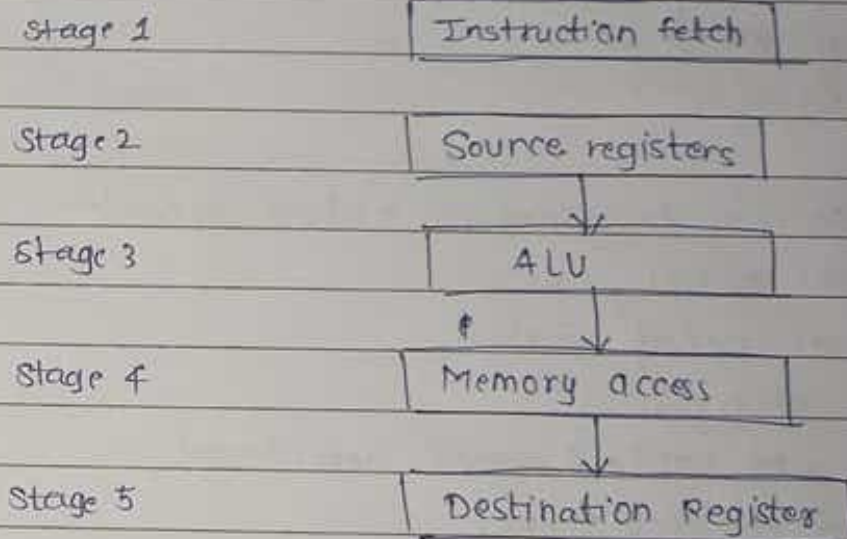 Stage 1 Instruction fetch
Stage 2 Source registers
Stage 3 ALU
Stage 4 Memory access
Stage 5 Destination Register